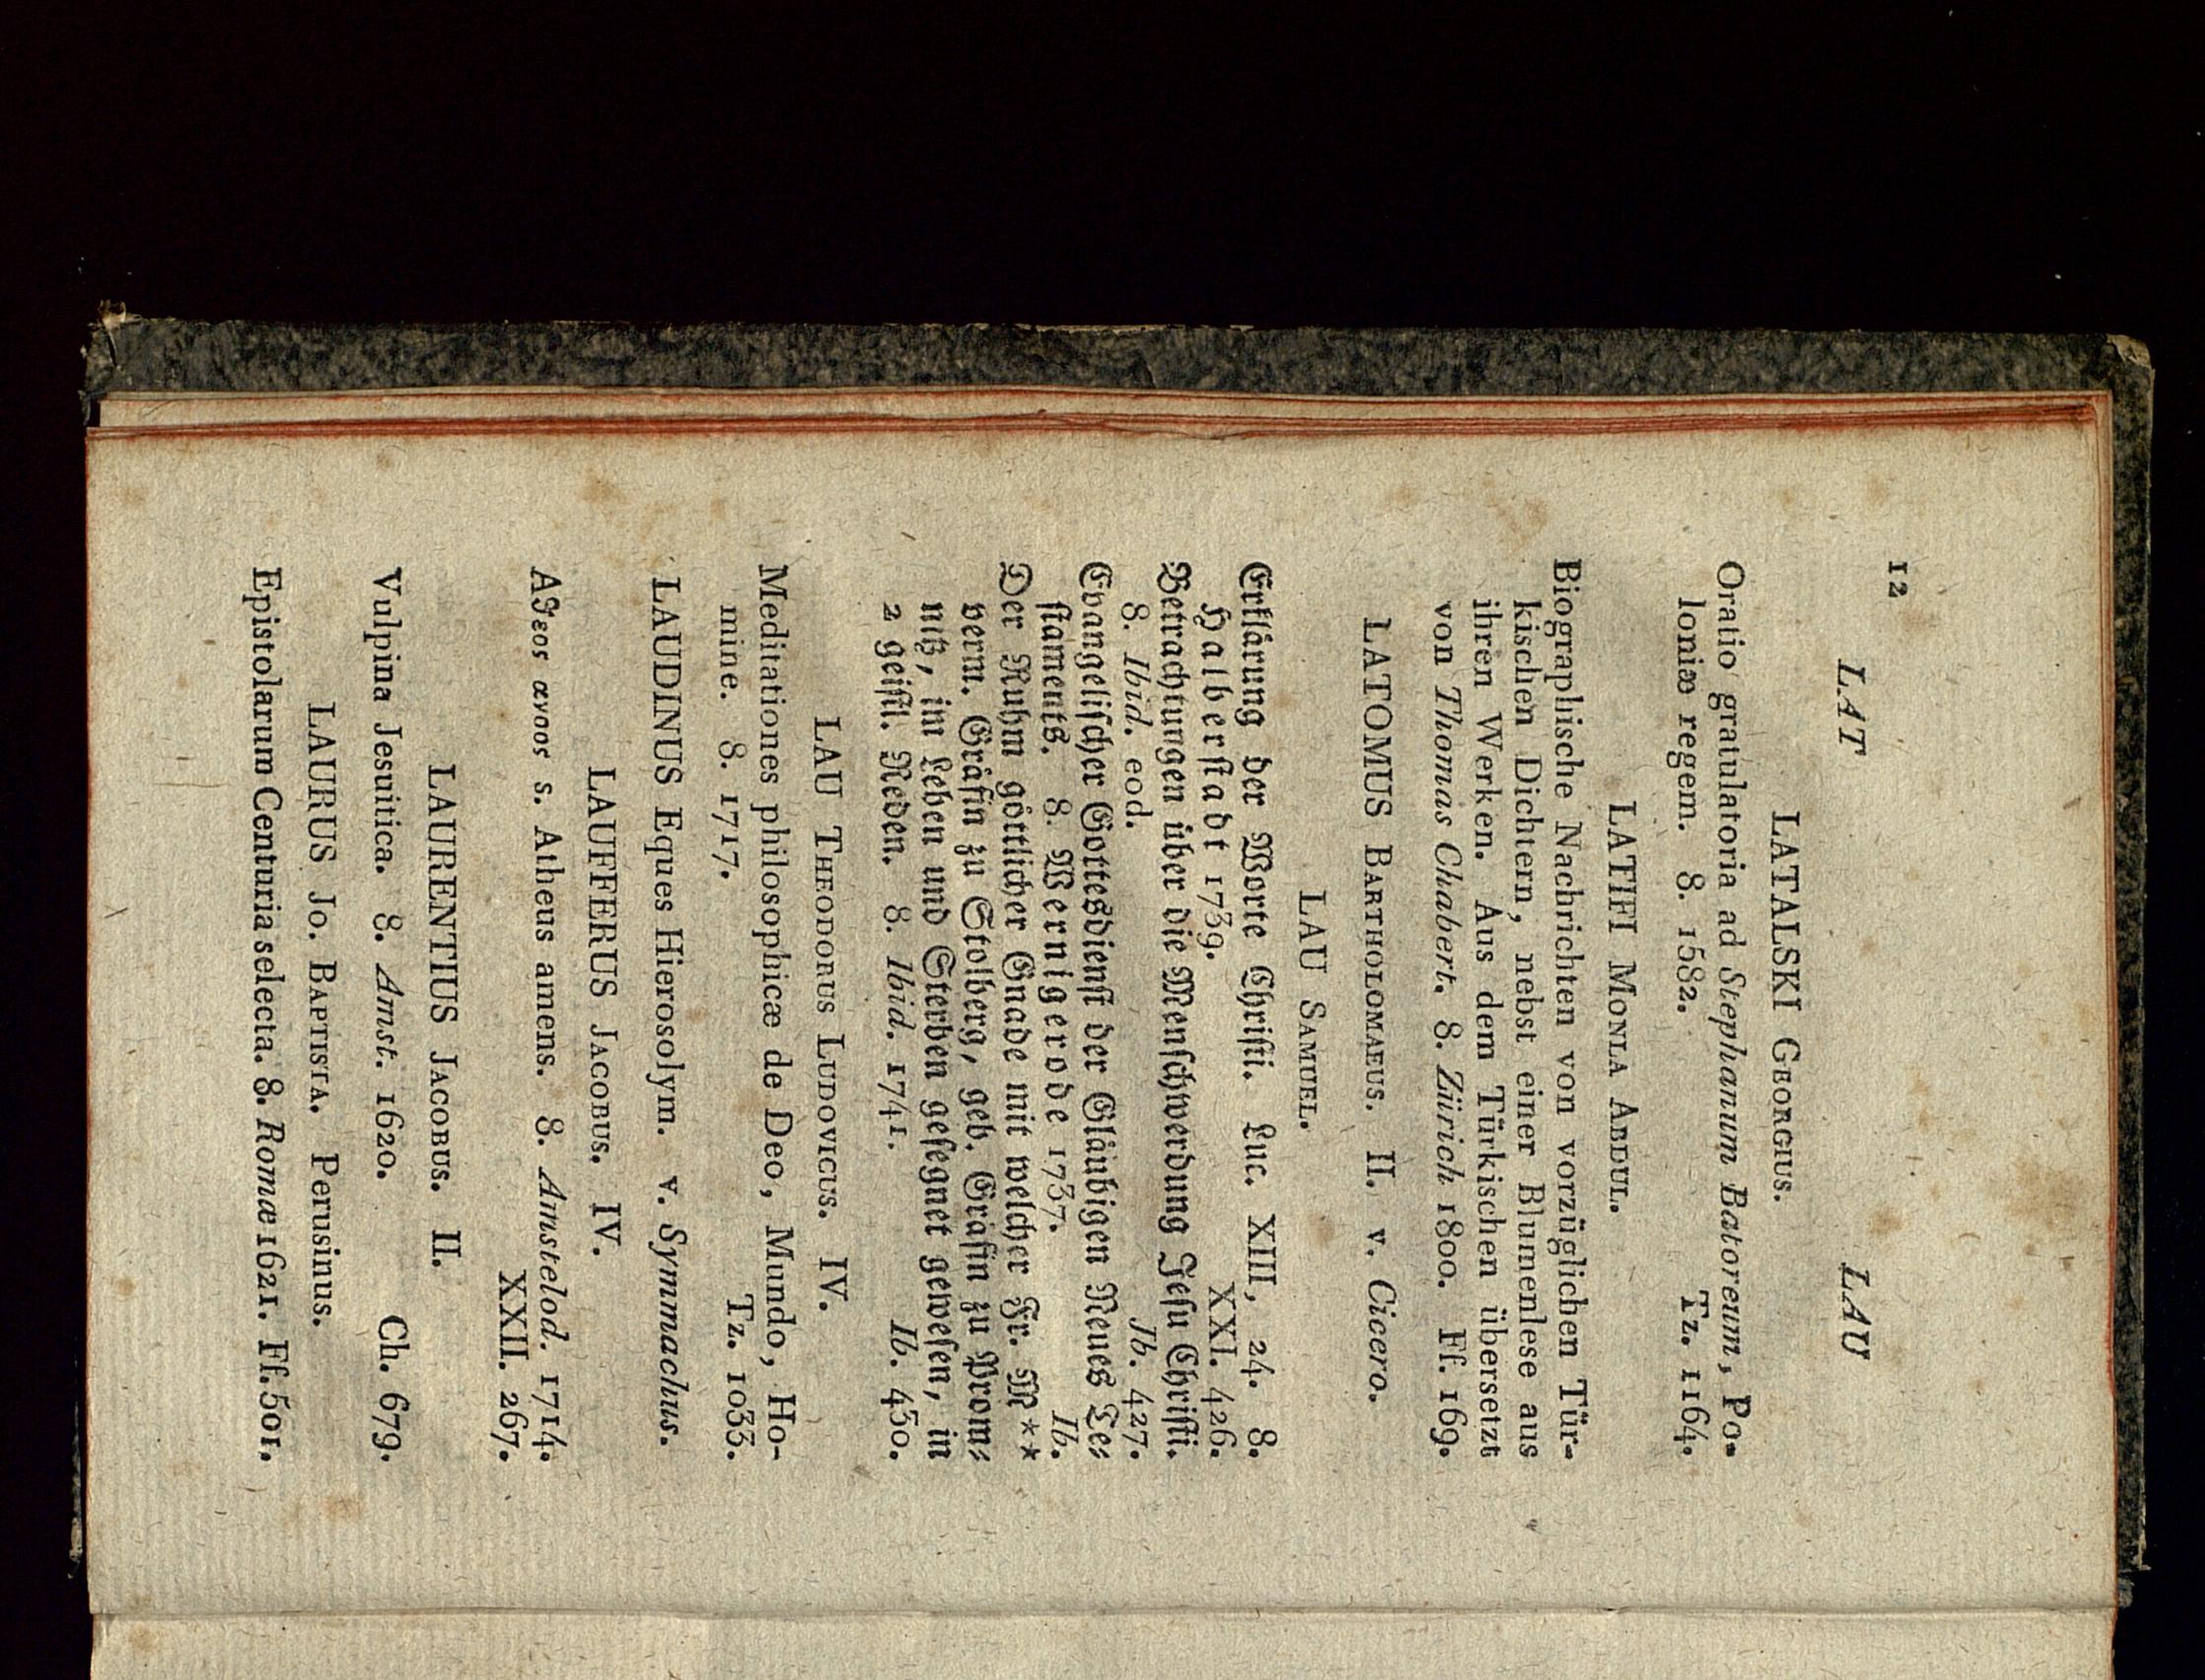 12
LAT LAU
LATALSKI GEORGIUS.
Oratio gratulatoria ad Stephanum Batoreum, Po-
loniæ regem. 8. 1582. Tz. 1164.
LATIFI MONLA ABDUL.
Biographische Nachrichten von vorzüglichen Tür-
kischen Dichtern, nebst einer Blumenlese aus
ihren Werken. Aus dem Türkischen übersetzt
von Thomas Chabert. 8. Zürich 1800. Ff. 169.
LATOMUS BARTHOLOMAEUS. II. v. Cicero.
LAU SAMUEL.
Erklärung der Worte Christi. Luc. XIII, 24. 8.
Halberstadt 1739. XXI. 426.
Betrachtungen über die Menschwerdung Jesu Christi.
8. Ibid. eod. Ib. 427.
Evangelischer Gottesdienst der Gläubigen Neues Te-
staments. 8. Wernigerode 1737. Ib.
Der Ruhm göttlicher Gnade mit welcher Fr. M**
verm. Gräfin zu Stolberg, geb. Gräfin zu Prom-
nitz, im Leben und Sterben gesegnet gewesen, in
2 geistl. Reden. 8. Ibid. 1741. Ib. 430.
LAU THEODORUS LUDOVICUS. IV.
Meditationes philosophicæ de Deo, Mundo, Ho-
mine. 8. 1717. Tz. 1033.
LAUDINUS Eques Hierosolym. v. Symmachus.
LAUFFERUS JACOBUS. IV.
Αϑεος ανοος s. Atheus amens. 8. Amstelod. 1714.
XXII. 267.
LAURENTIUS JACOBUS. II.
Vulpina Jesuitica. 8. Amst. 1620. Ch. 679.
LAURUS JO. BAPTISTA. Perusinus.
Epistolarum Centuria selecta. 8. Romæ 1621. Ff. 501.